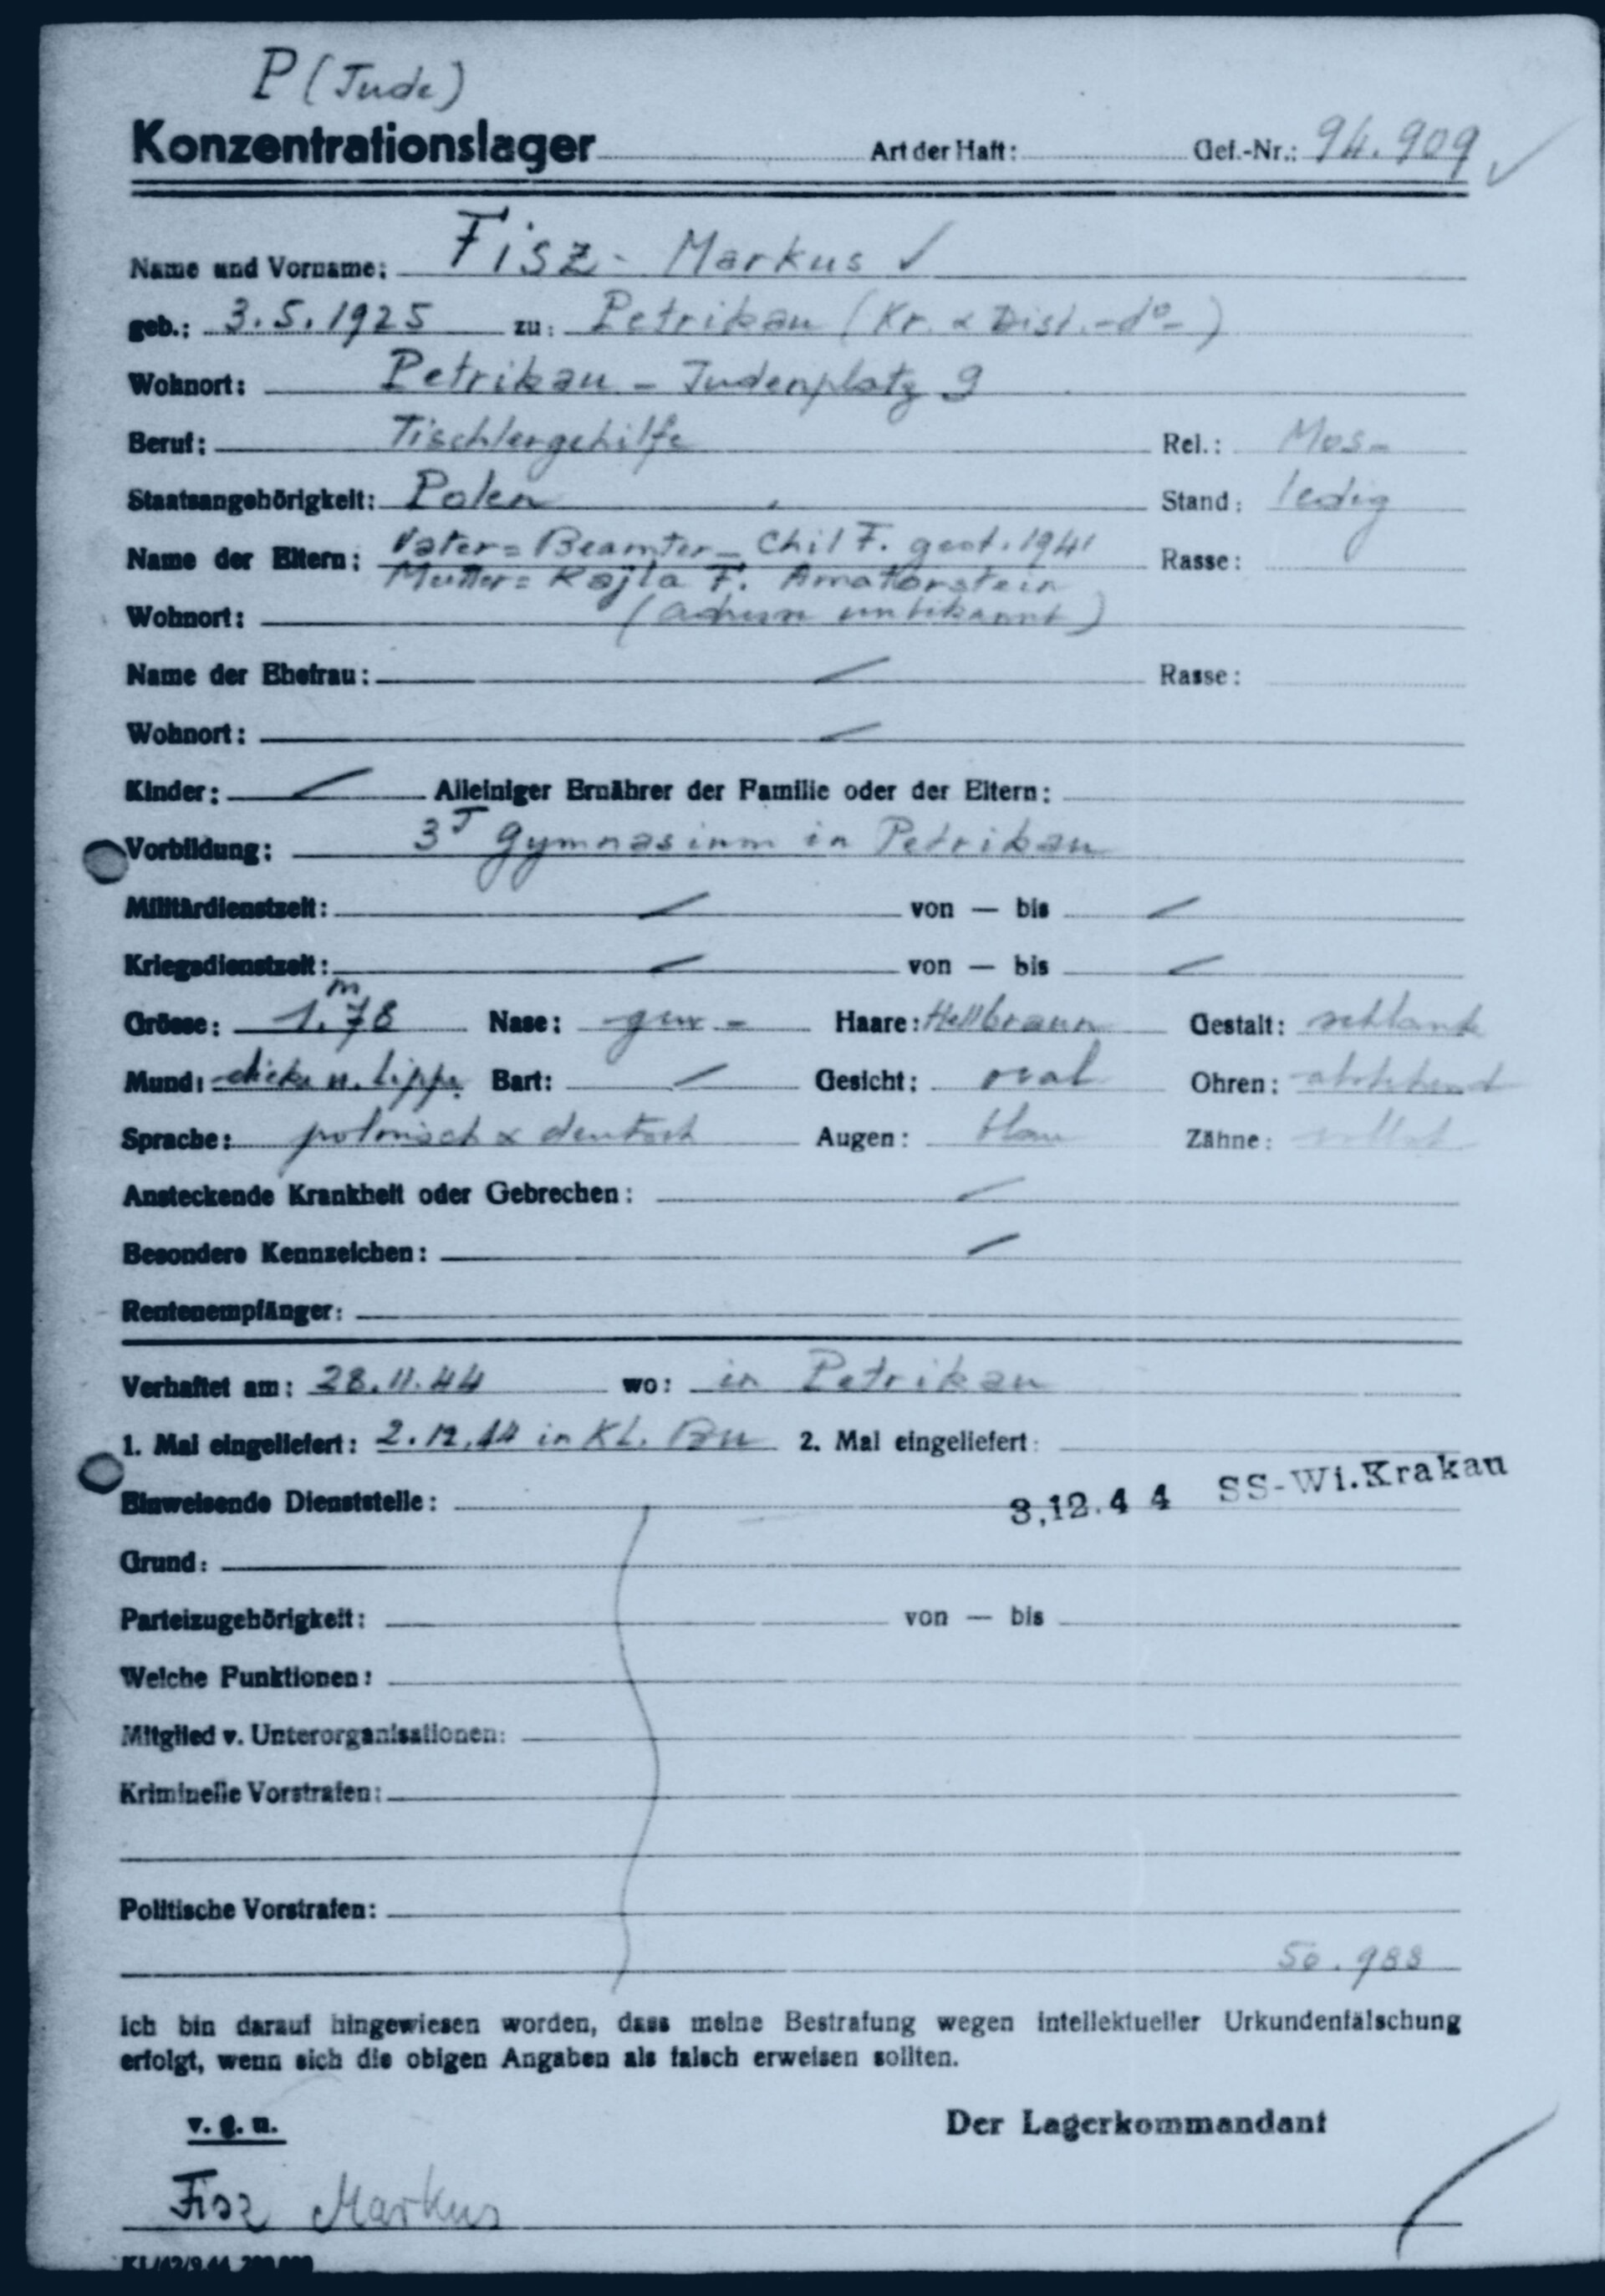 P (Jude)
Konzentrationslager Art der Haft: Gef.-Nr.: 94.909 ✓
Name und Vorname: Fisz - Markus ✓
geb.: 3.5.1925 zu: Petrikau (Kr. & Dist. -do-)
Wohnort: Petrikau - Judenplatz 9
Beruf: Tischlergehilfe Rel.: Mos-
Staatsangehörigkeit: Polen Stand: ledig
Name der Eltern: Vater = Beamter - Chil F. gest. 1941 Rasse:
Mutter = Kajla F. Amatorstein
Wohnort: ( unbekannt)
Name der Ehefrau: Rasse:
Wohnort:
Kinder: Alleiniger Ernährer der Familie oder der Eltern:
Vorbildung: 3 J Gymnasium in Petrikau
Militärdienstzeit: von — bis
Kriegsdienstzeit: von — bis
Grösse: 1.m78 Nase: Haare: Hellbraun Gestalt: schlank
Mund: dicke u. Lippe Bart: Gesicht: oval Ohren: abstehend
Sprache: polnisch & deutsch Augen: blau Zähne:
Ansteckende Krankheit oder Gebrechen:
Besondere Kennzeichen:
Rentenempfänger:
Verhaftet am: 28.11.44 wo: in Petrikau
1. Mal eingeliefert: 2.12.44 in KL. Bu 2. Mal eingeliefert:
Einweisende Dienststelle: 3.12.44 SS-Wi.Krakau
Grund:
Parteizugehörigkeit: von — bis
Welche Funktionen:
Mitglied v. Unterorganisationen:
Kriminelle Vorstrafen:
Politische Vorstrafen:
50.988
Ich bin darauf hingewiesen worden, dass meine Bestrafung wegen intellektueller Urkundenfälschung
erfolgt, wenn sich die obigen Angaben als falsch erweisen sollten.
v. g. u. Der Lagerkommandant
Fisz Markus